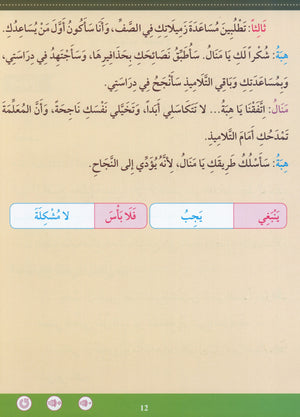 ثَالِثاً: تَطْلُبِينَ مُسَاعَدَةَ زَمِيلَاتِكِ فِي الصَّفِّ، وَأَنَا سَأَكُونُ أَوَّلَ مَنْ يُسَاعِدُكِ.
هِبَةُ: شُكْراً لَكِ يَا مَنَالُ. سَأُطَبِّقُ نَصَائِحَكِ بِحَذَافِيرِهَا، وَسَأَجْتَهِدُ فِي دِرَاسَتِي،
وَبِمُسَاعَدَتِكِ وَبَاقِي التَّلَامِيذِ سَأَنْجَحُ فِي دِرَاسَتِي.
مَنَالُ: اِتَّفَقْنَا يَا هِبَةُ... لَا تَتَكَاسَلِي أَبَداً، وَتَخَيَّلِي نَفْسَكِ نَاجِحَةً، وَأَنَّ الْمُعَلِّمَةَ
تَمْدَحُكِ أَمَامَ التَّلَامِيذِ.
هِبَةُ: سَأَسْلُكُ طَرِيقَكِ يَا مَنَالُ، لِأَنَّهُ يُؤَدِّي إِلَى النَّجَاحِ.
يَنْبَغِي يَجِبُ فَلَا بَأْسَ لَا مُشْكِلَةَ
12